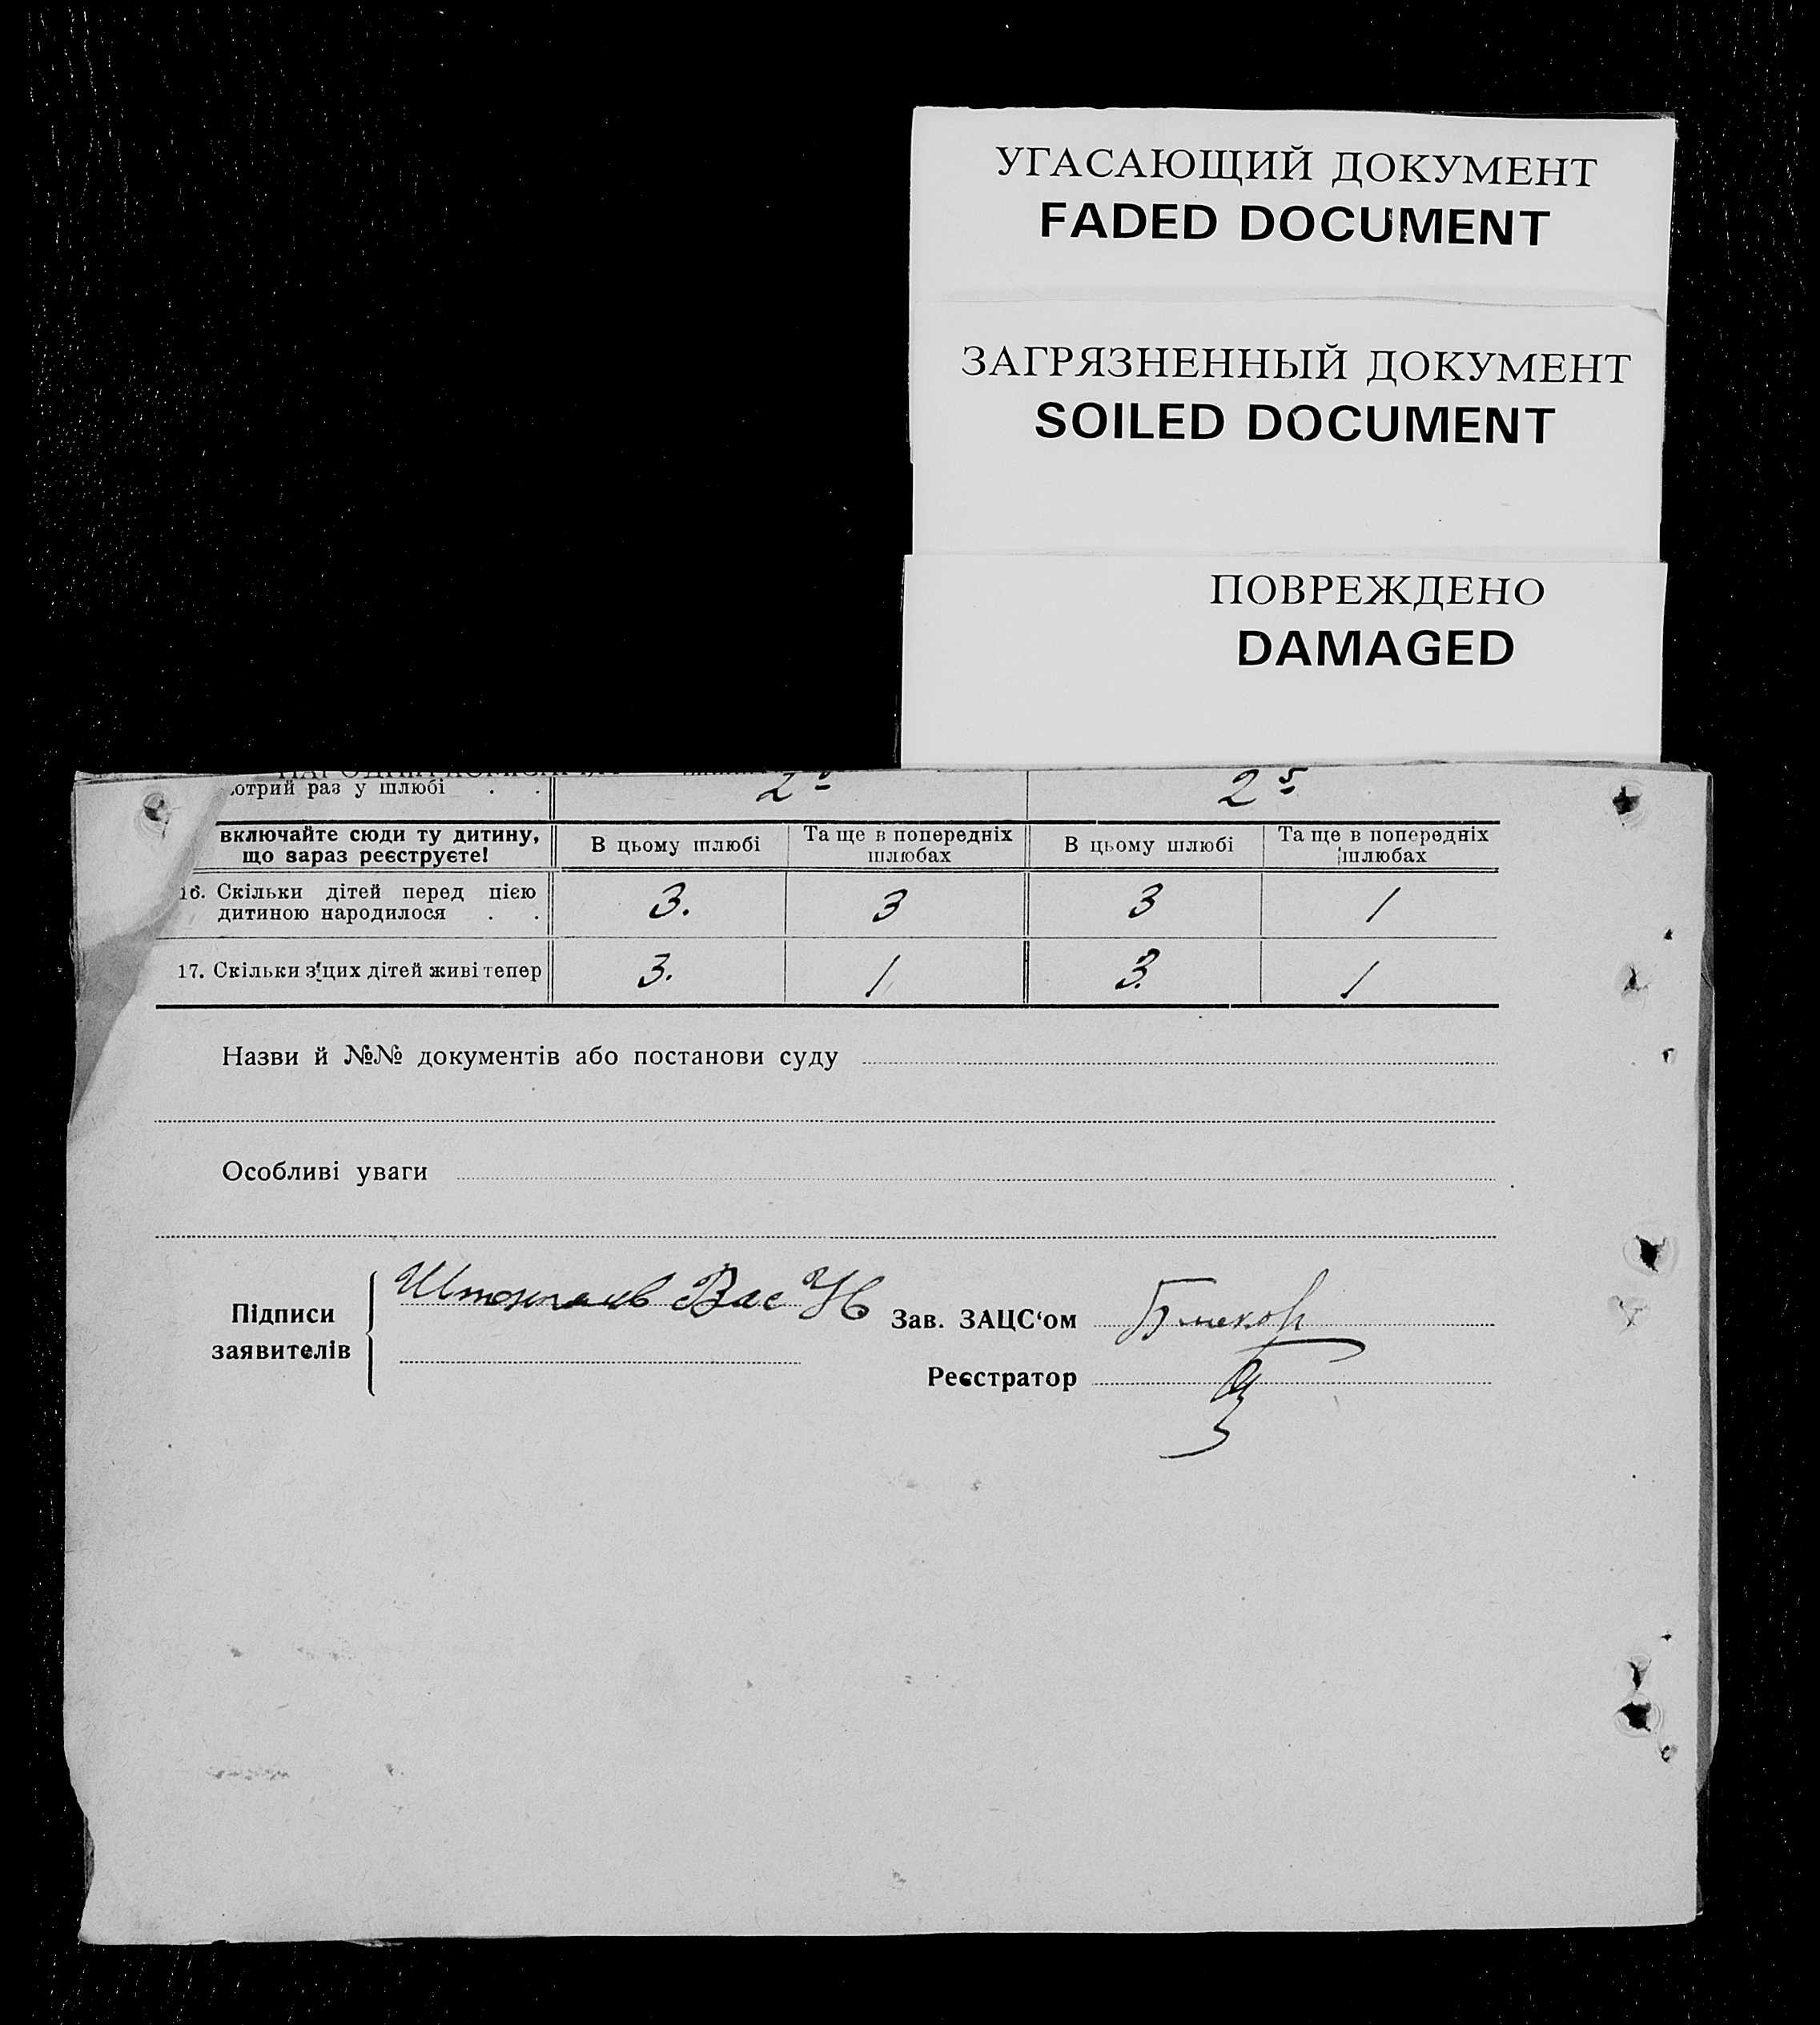 УГАСАЮЩИЙ ДОКУМЕНТ
FADED DOCUMENT
ЗАГРЯЗНЕННЫЙ ДОКУМЕНТ
SOILED DOCUMENT
ПОВРЕЖДЕНО
DAMAGED
отрий раз у шлюбі . . 2 2
включайте сюди ту дитину,
що зараз реєструєте!
В цьому шлюбі
Та ще в попередніх
шлюбах
В цьому шлюбі
Та ще в попередніх
шлюбах
16. Скільки дітей перед цією
дитиною народилося . . 3. 3 3 1
17. Скільки з цих дітей живі тепер 3. 1 3. 1
Назви й №№ документів або постанови суду
Особливі уваги
Підписи
заявителів
Вас
Зав. ЗАЦС‘ом
Реєстратор